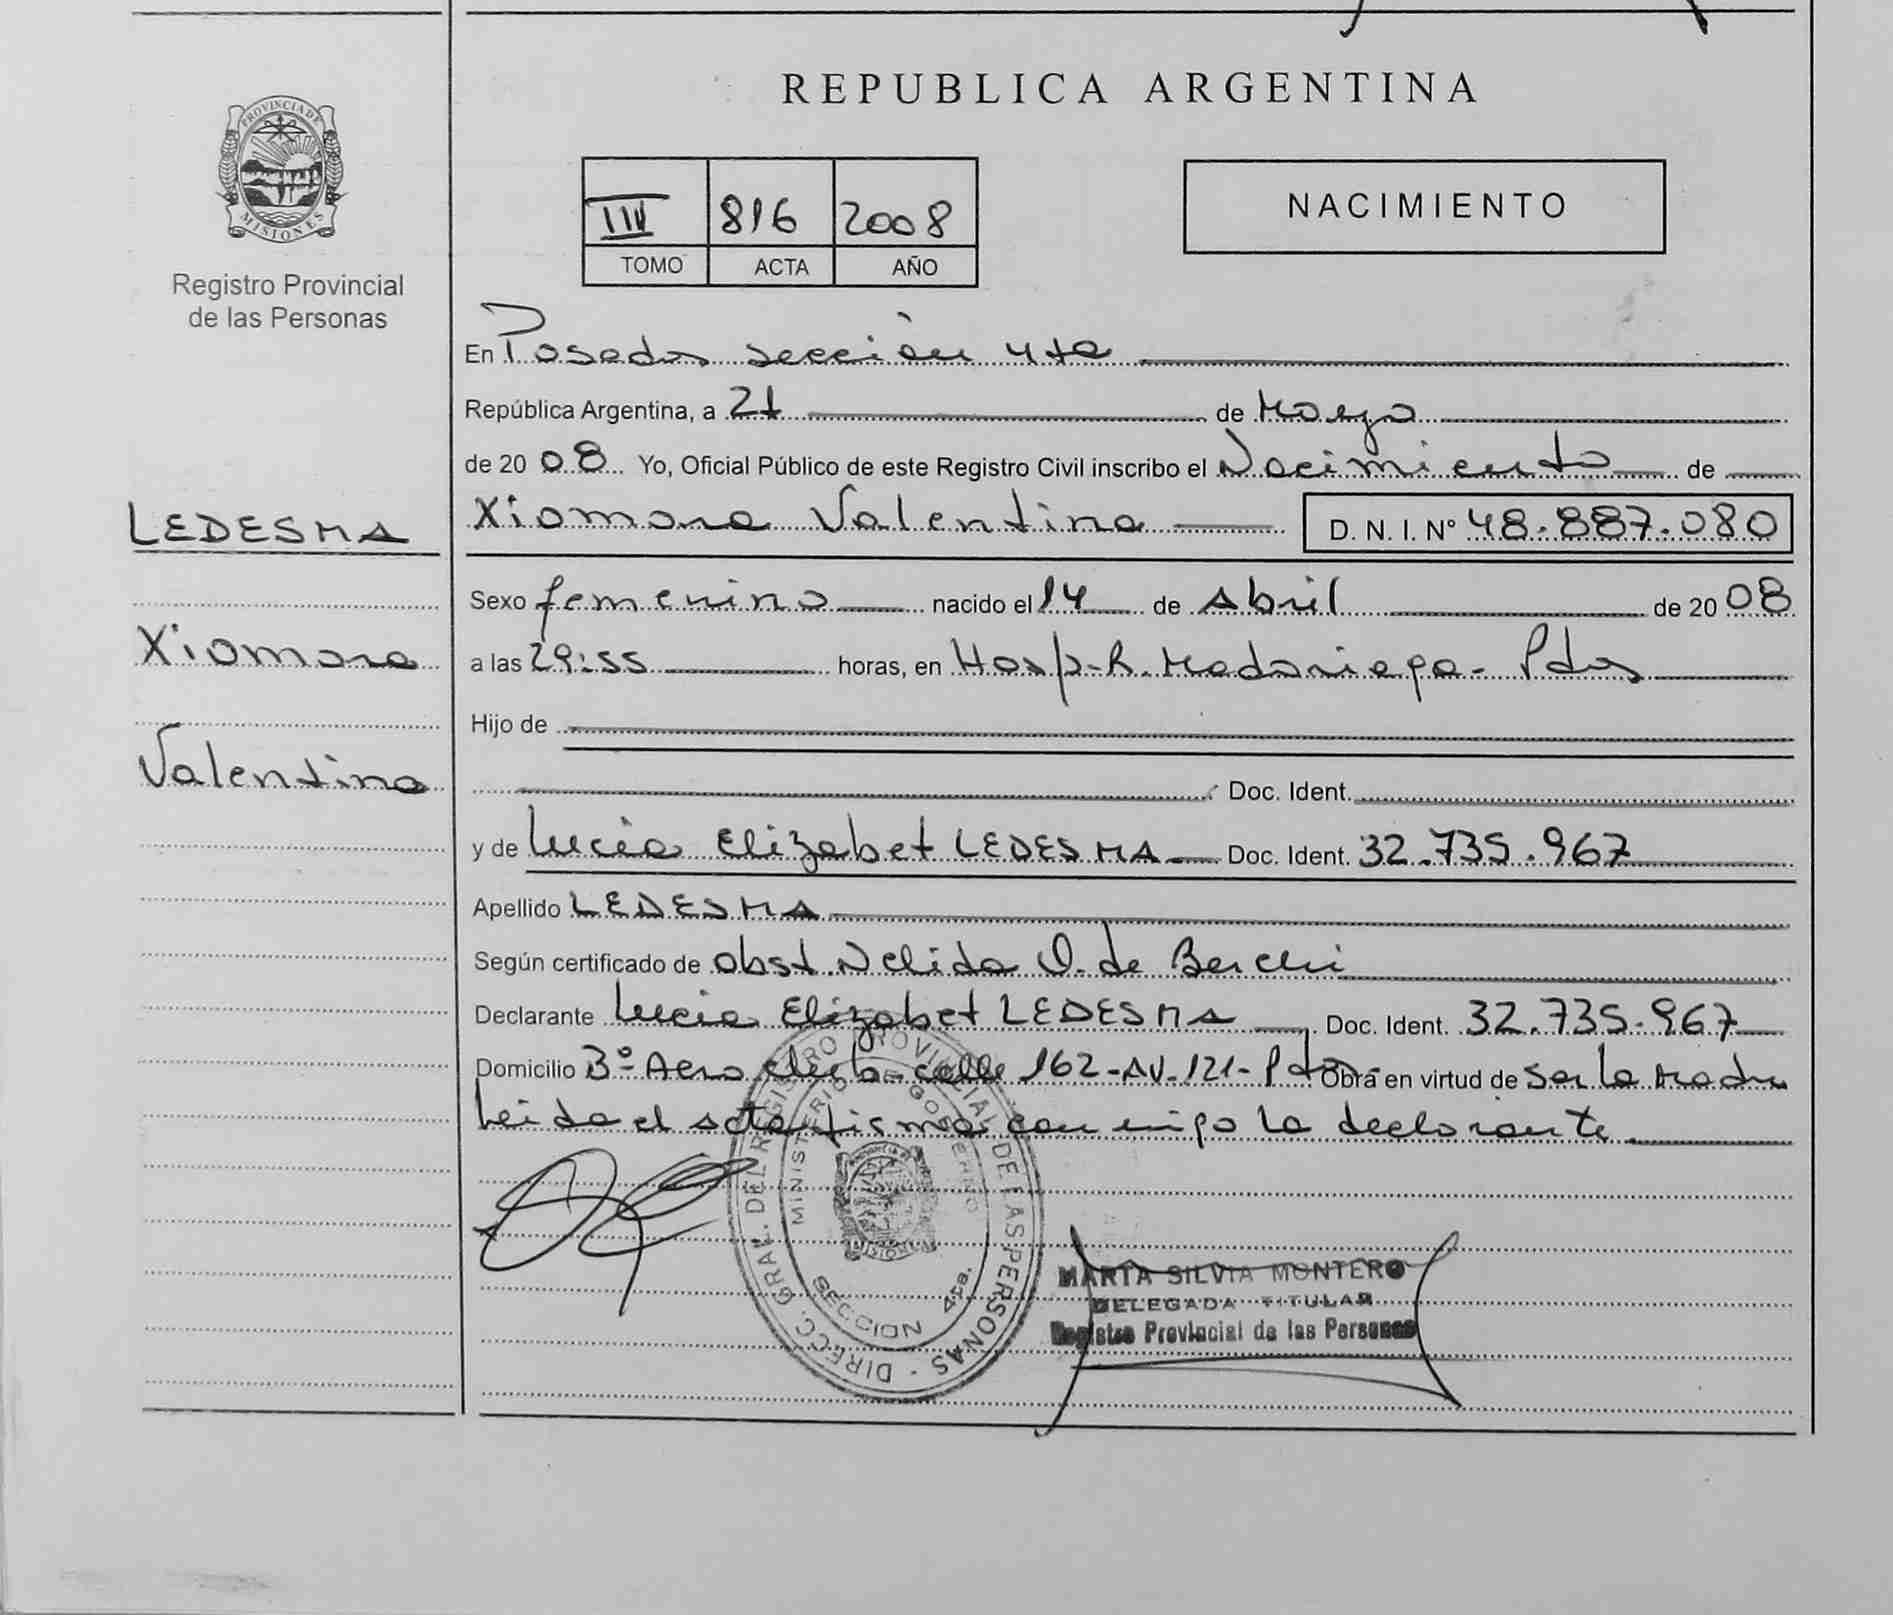 REPUBLICA ARGENTINA
PROVINCIA DE MISIONES
Registro Provincial
de las Personas
III 816 2008
TOMO ACTA AÑO
NACIMIENTO
En Posadas sección 4ta
República Argentina, a 21 de Mayo
de 2008 Yo, Oficial Público de este Registro Civil inscribo el Nacimiento de
LEDESMA
Xiomara Valentina D. N. I. Nº 48.887.080
Sexo femenino nacido el 14 de Abril de 2008
Xiomara
a las horas, en Hosp. R. Madariaga - Pdas
Hijo de
Valentina
Doc. Ident.
y de Lucia Elizabet LEDESMA Doc. Ident. 32.735.967
Apellido LEDESMA
Según certificado de obst Nelida O. de
Declarante Lucia Elizabet LEDESMA Doc. Ident. 32.735.967
Domicilio Bº Aero club - calle 162 - AV. 121 - Pdas Obra en virtud de ser la Madre
Leida el acta firma conmigo la declarante
DIRECC. GRAL. DEL REGISTRO PROVINCIAL DE LAS PERSONAS
MINISTERIO DE GOBIERNO
MISIONES
SECCION 4ta.
MARTA SILVIA MONTERO
DELEGADA TITULAR
Registro Provincial de las Personas